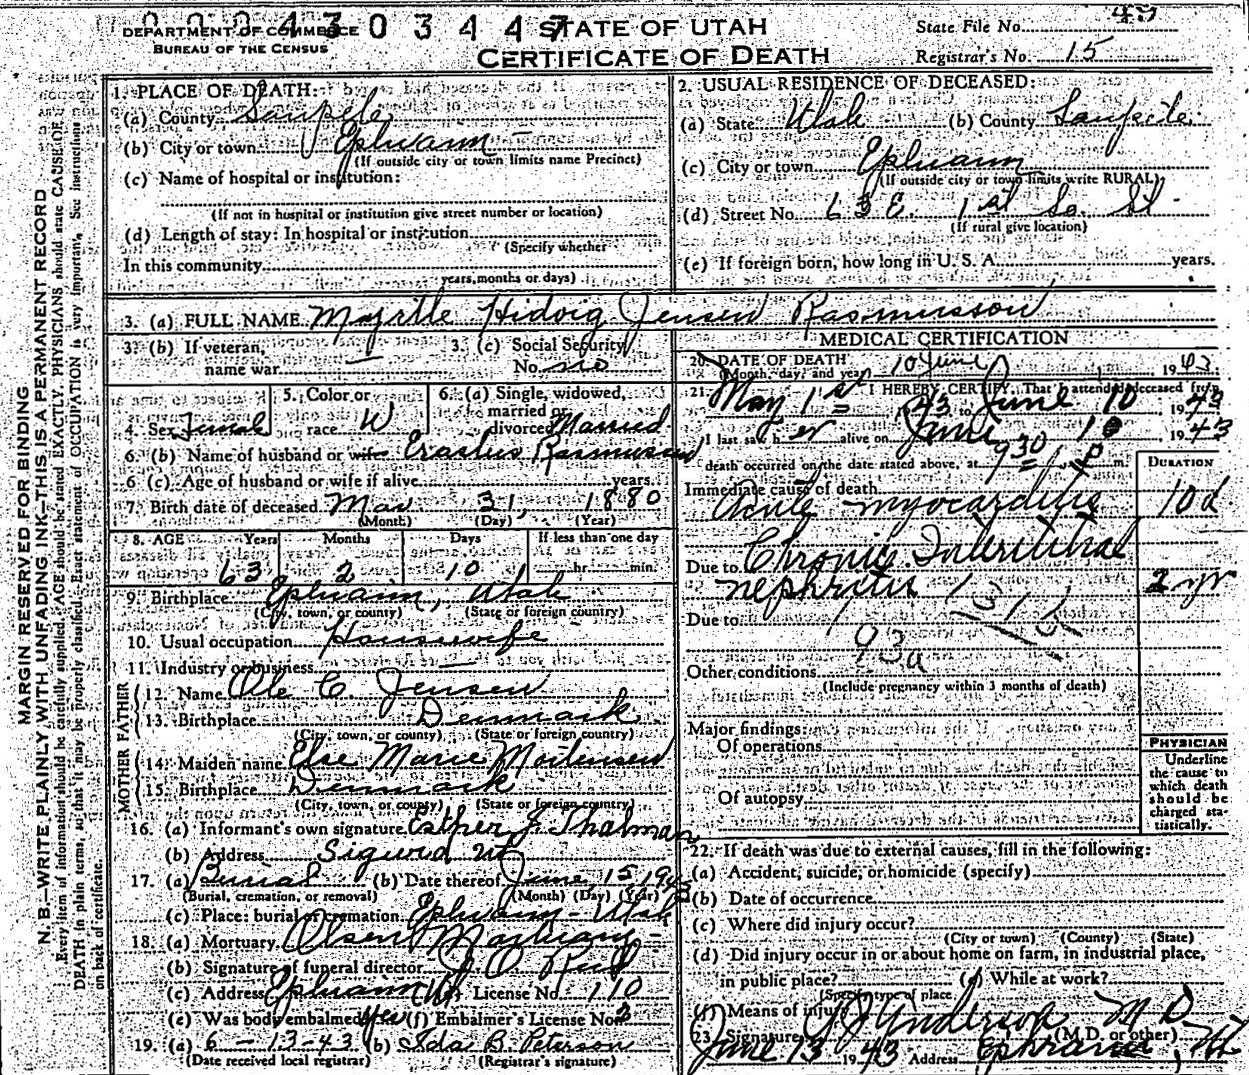 DEPARTMENT OF COMMERCE
BUREAU OF THE CENSUS
STATE OF UTAH
CERTIFICATE OF DEATH
State File No. 45
Registrar's No. 15
MARGIN RESERVED FOR BINDING
N. B.—WRITE PLAINLY WITH UNFADING INK—THIS IS A PERMANENT RECORD
Every item of information should be carefully supplied. AGE should be stated EXACTLY. PHYSICIANS should state CAUSE OF
DEATH in plain terms, so that it may be properly classified. Exact statement of OCCUPATION is very important. See instructions
on back of certificate.
1. PLACE OF DEATH:
(a) County Sanpete
(b) City or town Ephraim
(If outside city or town limits name Precinct)
(c) Name of hospital or institution:
(If not in hospital or institution give street number or location)
(d) Length of stay: In hospital or institution
(Specify whether
In this community
years, months or days)
2. USUAL RESIDENCE OF DECEASED:
(a) State Utah (b) County Sanpete
(c) City or town Ephraim
(If outside city or town limits write RURAL)
(d) Street No. 63 E. 1st So. St.
(If rural give location)
(e) If foreign born, how long in U. S. A. years.
3. (a) FULL NAME Myrtle Hidvig Jensen Rasmusson
3. (b) If veteran, name war —
3. (c) Social Security No. no
4. Sex Female
5. Color or race W
6. (a) Single, widowed, married or divorced Married
6. (b) Name of husband or wife Erastus Rasmussen
6 (c). Age of husband or wife if alive years
7. Birth date of deceased Mar 31, 1880
(Month) (Day) (Year)
8. AGE Years Months Days If less than one day
63 2 10 hr. min.
9. Birthplace Ephraim, Utah
(City, town, or county) (State or foreign country)
10. Usual occupation Housewife
11. Industry or business —
FATHER
12. Name Ole C. Jensen
13. Birthplace Denmark
(City, town, or county) (State or foreign country)
MOTHER
14. Maiden name Else Marie Mortensen
15. Birthplace Denmark
(City, town, or county) (State or foreign country)
16. (a) Informant's own signature Esther J. Thalman
(b) Address Sigurd Ut
17. (a) Burial (b) Date thereof June 15 1943
(Burial, cremation, or removal) (Month) (Day) (Year)
(c) Place: burial or cremation Ephraim - Utah
18. (a) Mortuary Olsen Mortuary
(b) Signature of funeral director
(c) Address Ephraim License No. 110
(e) Was body embalmed? Yes (f) Embalmer's License No.
19. (a) 6-13-43 (b) Ida B. Peterson
(Date received local registrar) (Registrar's signature)
MEDICAL CERTIFICATION
20. DATE OF DEATH
(Month, day, and year) 10 June 1943
21. I HEREBY CERTIFY, That I attended deceased from
May 1st 1943 to June 10 1943
I last saw her alive on June 10 1943
death occurred on the date stated above, at 9 30 p m.
DURATION
Immediate cause of death
Acute myocarditis 10d
Due to Chronic Interstitial
nephritis 2 yr
Due to
93a
Other conditions
(Include pregnancy within 3 months of death)
Major findings:
Of operations
Of autopsy
PHYSICIAN
Underline
the cause to
which death
should be
charged sta-
tistically.
22. If death was due to external causes, fill in the following:
(a) Accident, suicide, or homicide (specify)
(b) Date of occurrence
(c) Where did injury occur?
(City or town) (County) (State)
(d) Did injury occur in or about home on farm, in industrial place,
in public place? (e) While at work?
(Specify type of place)
(f) Means of injury
23. Signature Anderson M D
(M.D. or other)
June 13 1943 Address Ephraim, Ut